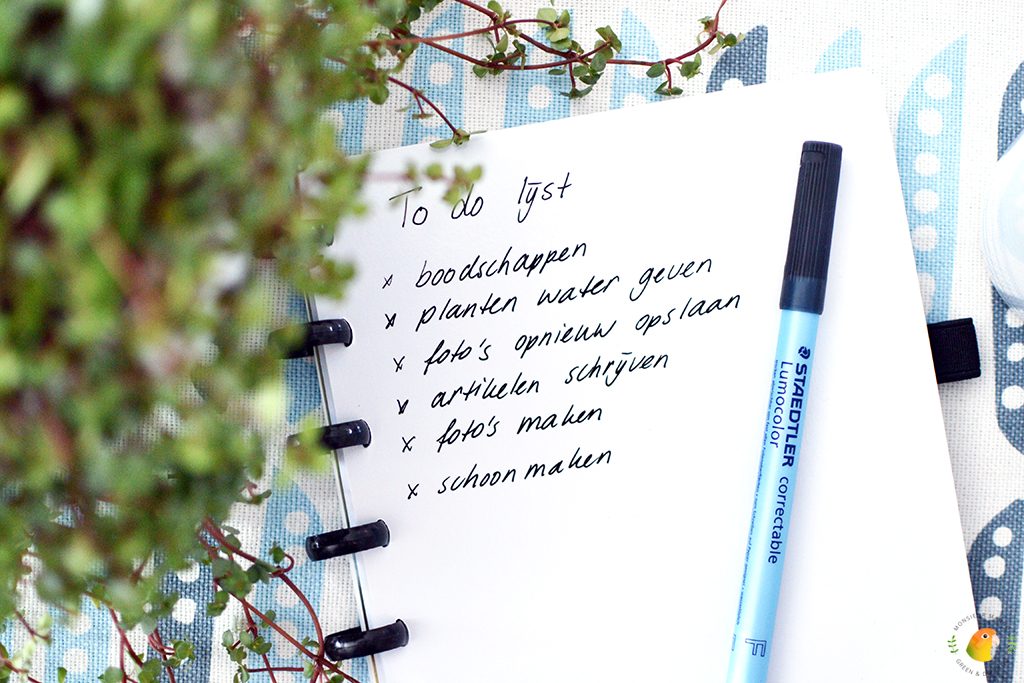 To do lijst
x boodschappen
x planten water geven
x foto's opnieuw opslaan
x artikelen schrijven
x foto's maken
x schoonmaken
STAEDTLER
Lumocolor correctable
F